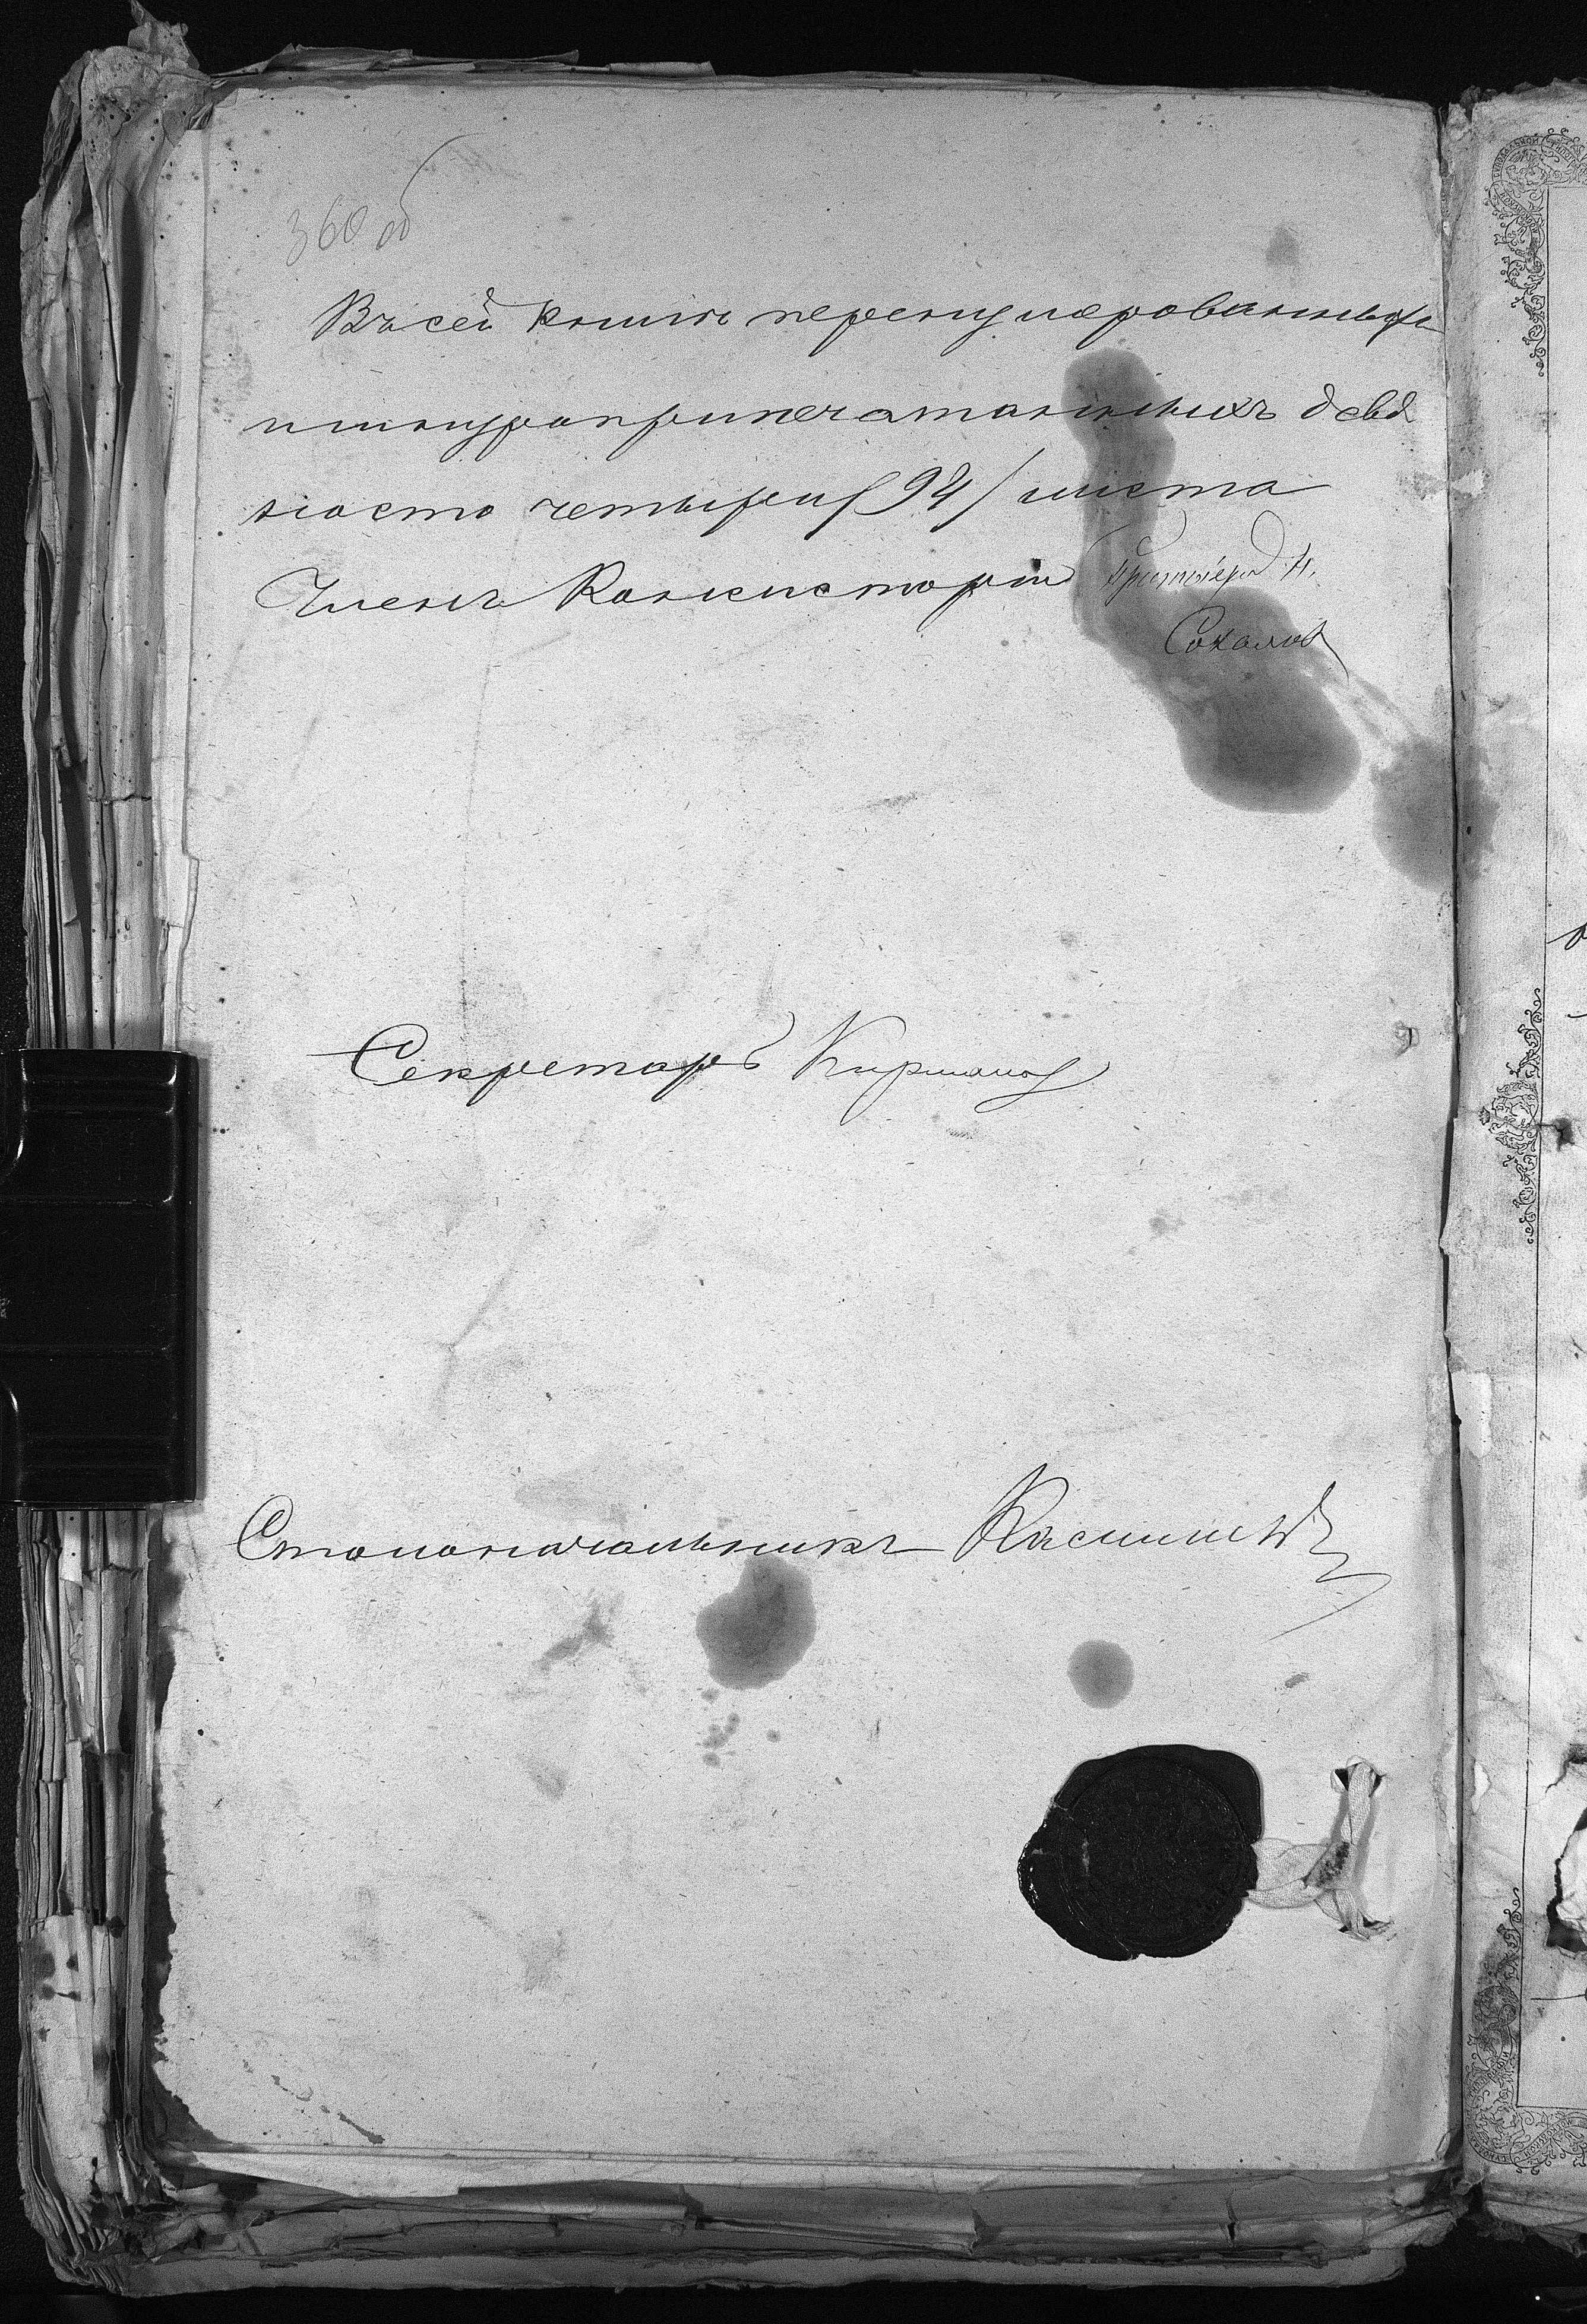 360 об
Въ сей книгѣ перенумерованныхъ
и шнуроприпечатанныхъ девя
носто четыре /94/ листа
Членъ Консисторіи Протоіерей Н.
Соколов
Секретарь
Столоначальникъ